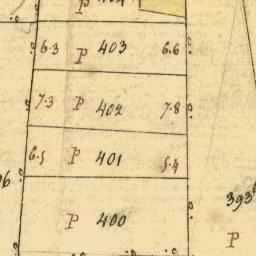 P
6.3 P 403 6.6
7.3 P 402 7.8
6.5 P 401 5.4
P 400
393
P